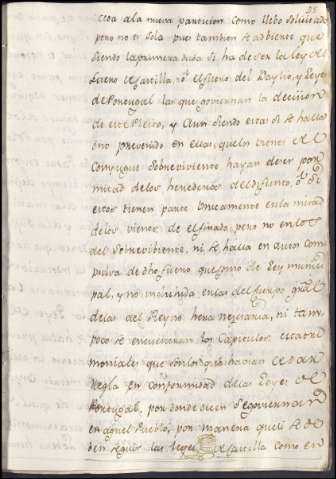 35
cesa a la nueva particion como llebo solicitado
pero no es sola pues tambien se adbierte que
siendo la primera duda si ha de ser la ley del
fuero de Castilla, o el fuero del Baylio, y leyes
de Portugal las que goviernan la decision
de este Pleito, y aun siendo estas si se halla
prevenido en ellas, que los vienes del
Conyuge Sobreviviente hayan de ser por
mitad de los herederos del difunto, o si
estos tienen parte unicamente en la mitad
de los vienes de el finado, pero no en los
del Sobrevibiente, ni se halla en autos com
pulsa de dho fuero que como de ley munici
pal, y no incluida en las del fuerpo gral
de las del Reyno hera nezesaria, ni tam
poco se encuentran los Capitulos matri
moniales que son los que havian de dar
regla en conformidad de las leyes de
Portugal, por donde dicen se govierna
en aquel Pueblo, por manera que si se de
ven seguir las leyes de Castilla como en